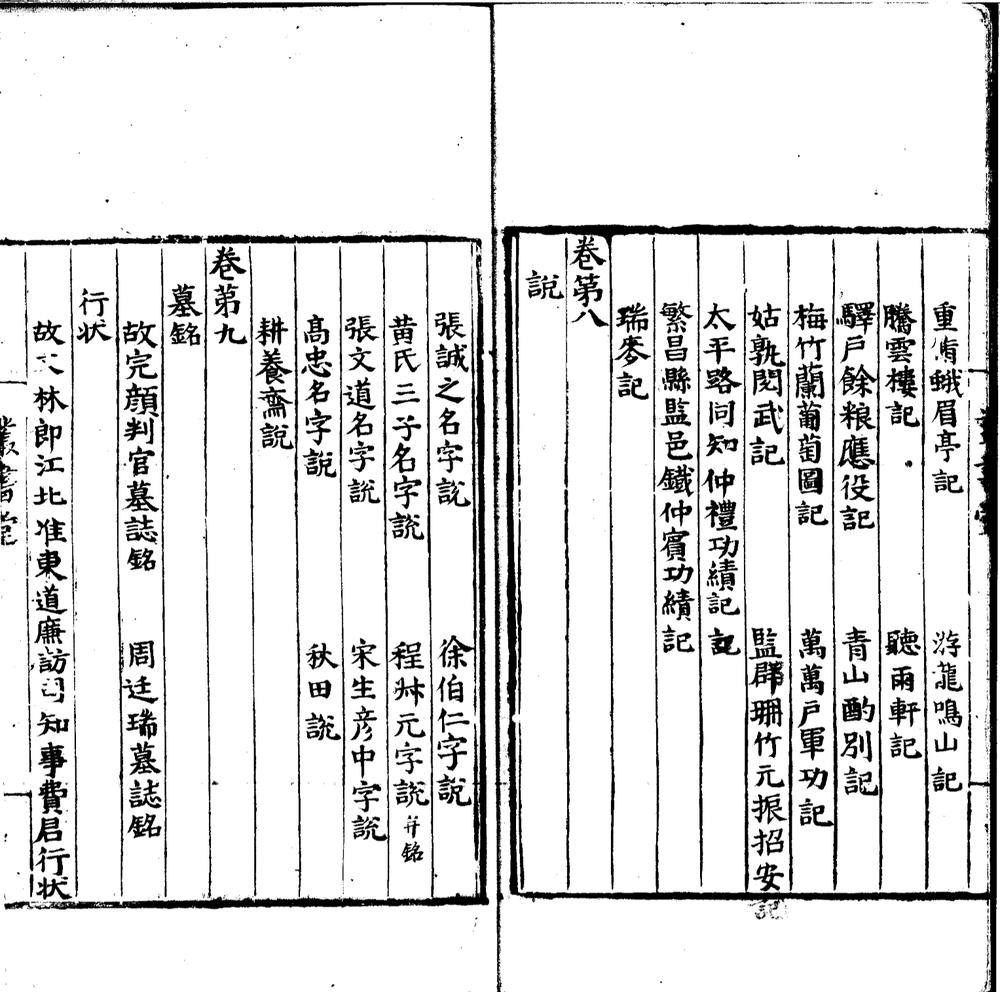 重脩蛾眉亭記　游龍鳴山記
騰雲樓記　聽雨軒記
驛戶餘粮應役記　青山酌別記
梅竹蘭葡萄圖記　萬萬戶軍功記
姑孰閱武記　監辟珊竹元振招安記
太平路同知仲禮功績記
繁昌縣監邑鐵仲賓功績記
瑞麥記
卷第八
說
張誠之名字說　徐伯仁字說
黃氏三子名字說　程㪷元字說并銘
張文道名字說　宋生彦中字說
髙忠名字說　秋田說
耕養齋說
卷第九
墓銘
故完顔判官墓誌銘　周廷瑞墓誌銘
行狀
故文林郎江北淮東道廉訪司知事費君行狀
叢書堂